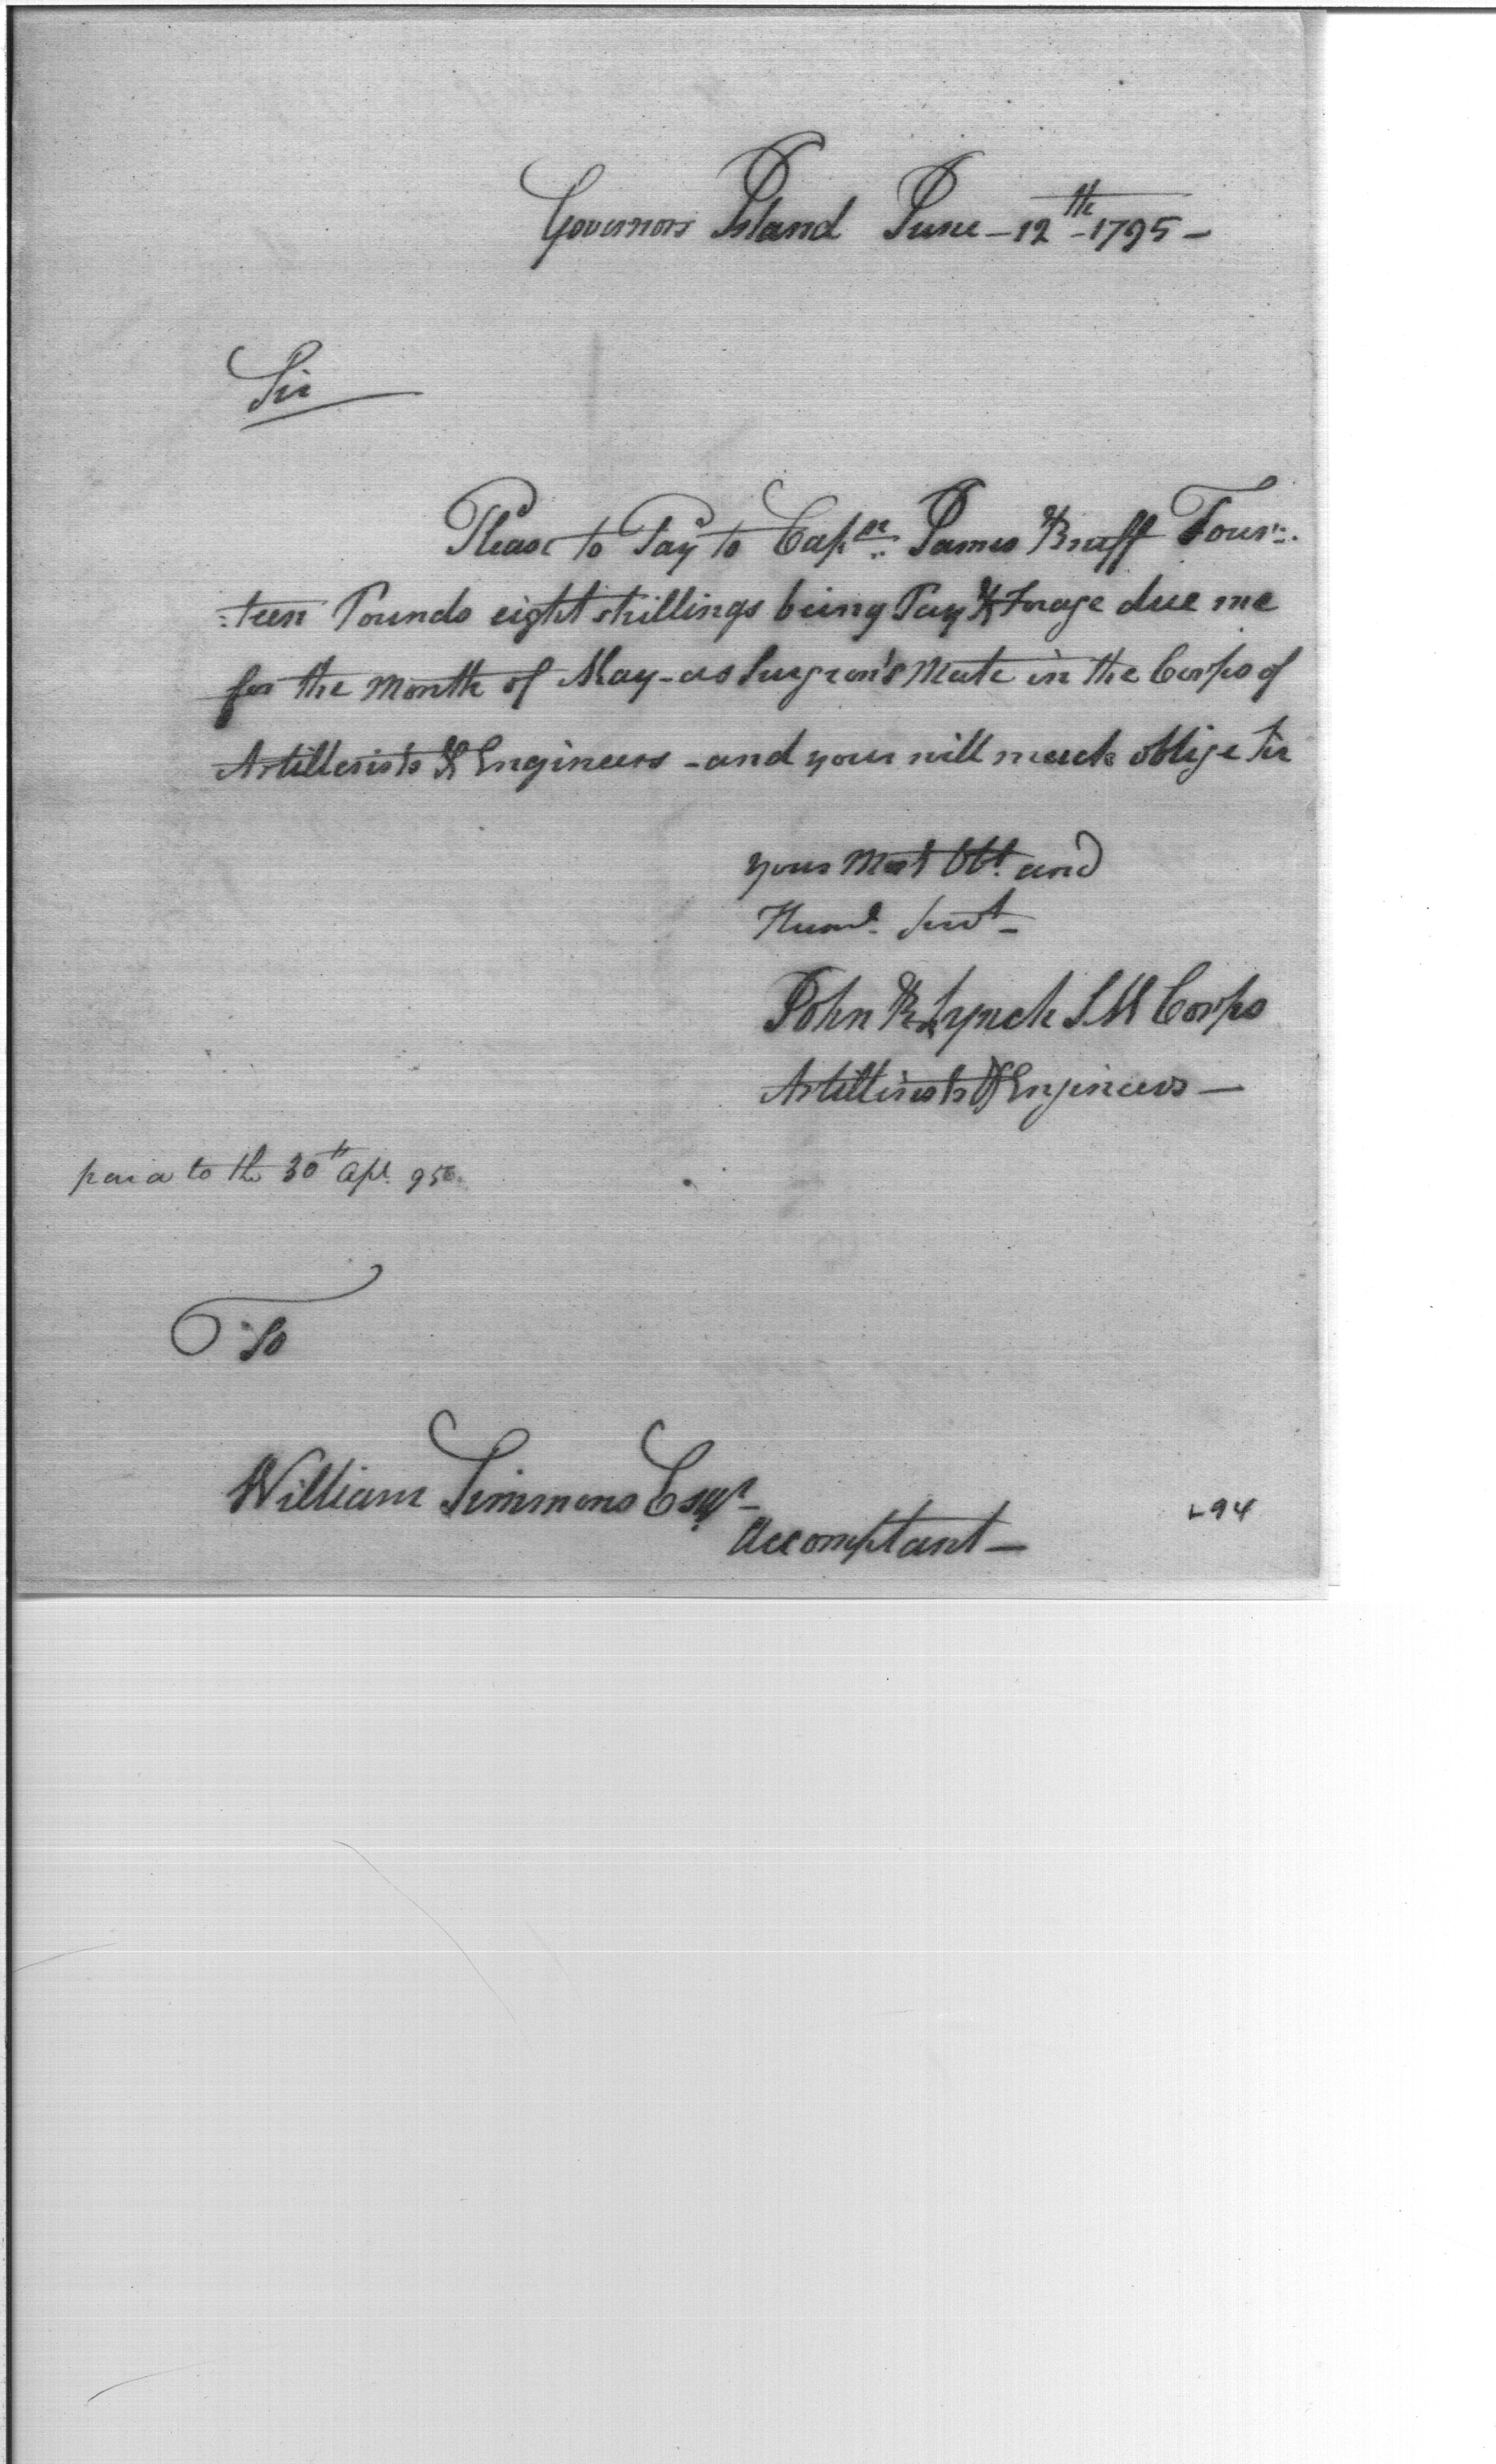 Governors Island June - 12th - 1795 -
Sir
Please to Pay to Captn. James Bruff Four=
=teen Pounds eight shillings being Pay & Forage due me
for the Month of May - as Surgeon's Mate in the Corps of
Artillerists & Engineers - and your will much oblige Sir
your Most Obt. and
Huml. Servt -
John R Lynch S M Corps
Artillirists & Engineers -
paid to the 30th Apl. 95
To
William Simmons Esqr -
Accomptant -
L94